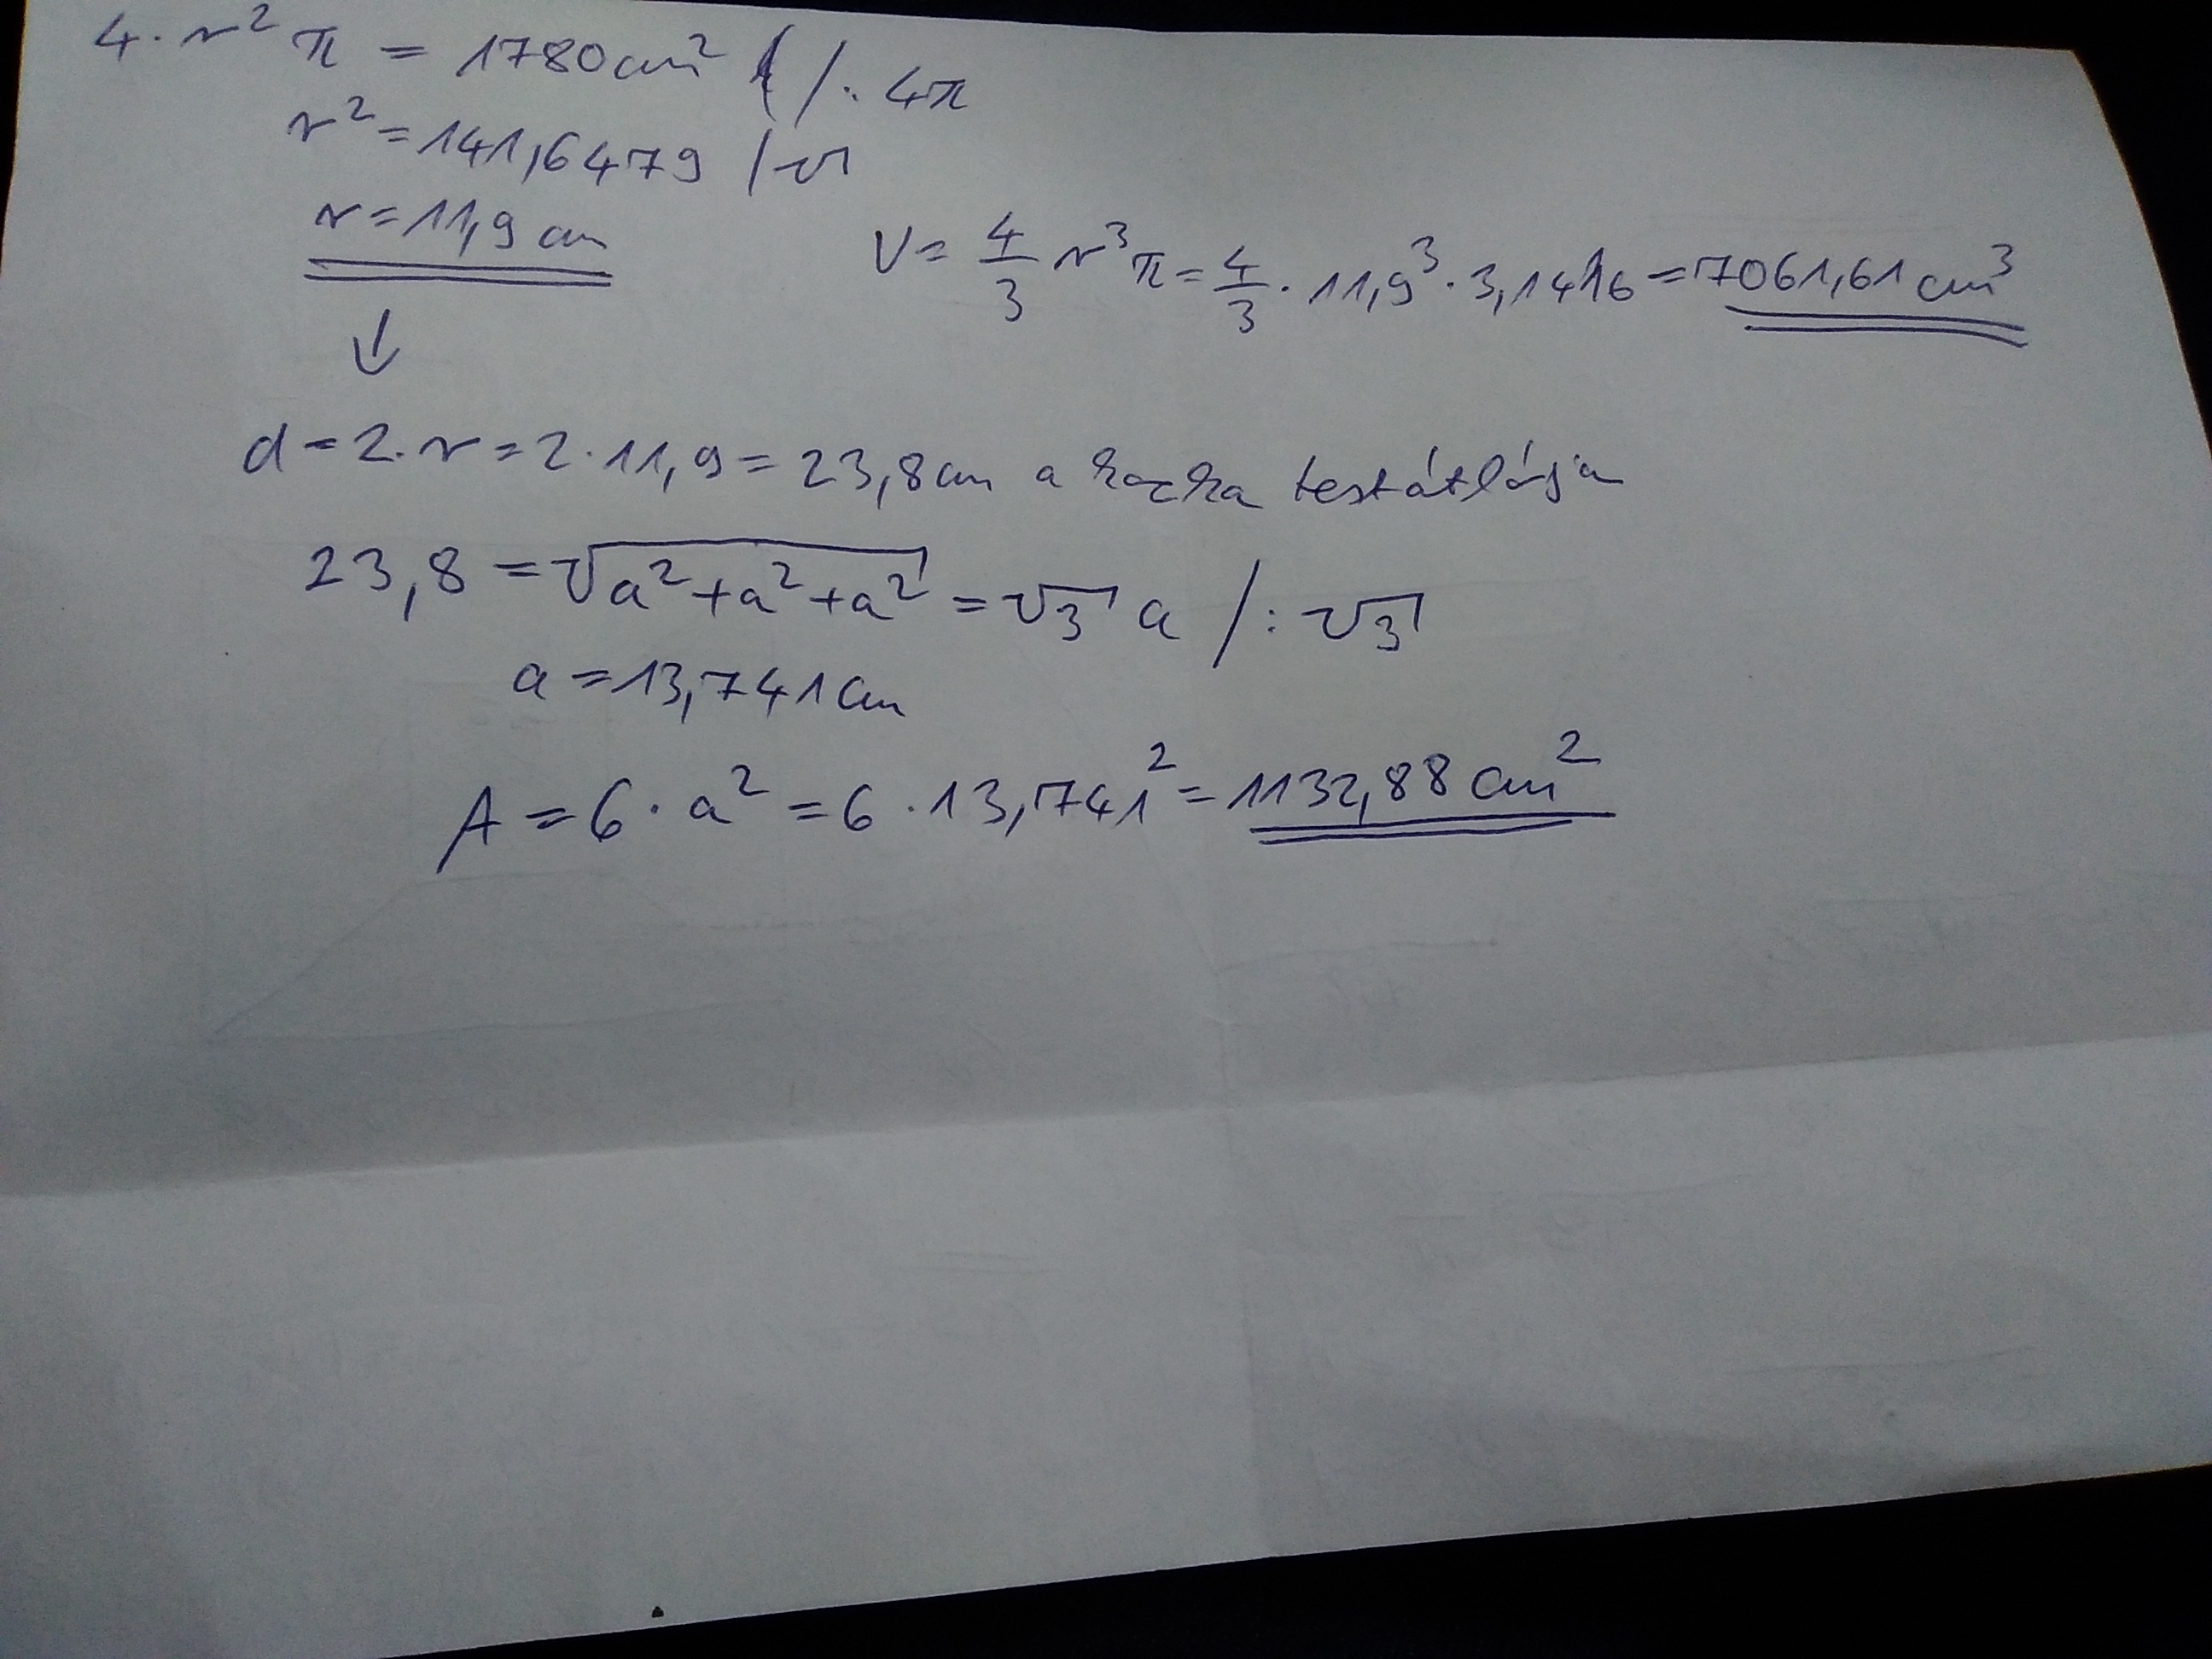 4·r² π = 1780cm² /: 4π
r² = 141,6479 /√
r = 11,9 cm
V = 4/3 r³ π = 4/3 · 11,9³ · 3,1416 = 7061,61 cm³
↓
d = 2·r = 2·11,9 = 23,8cm a kocka testátlója
23,8 = √(a²+a²+a²) = √3 a /: √3
a = 13,741cm
A = 6·a² = 6·13,741² = 1132,88 cm²